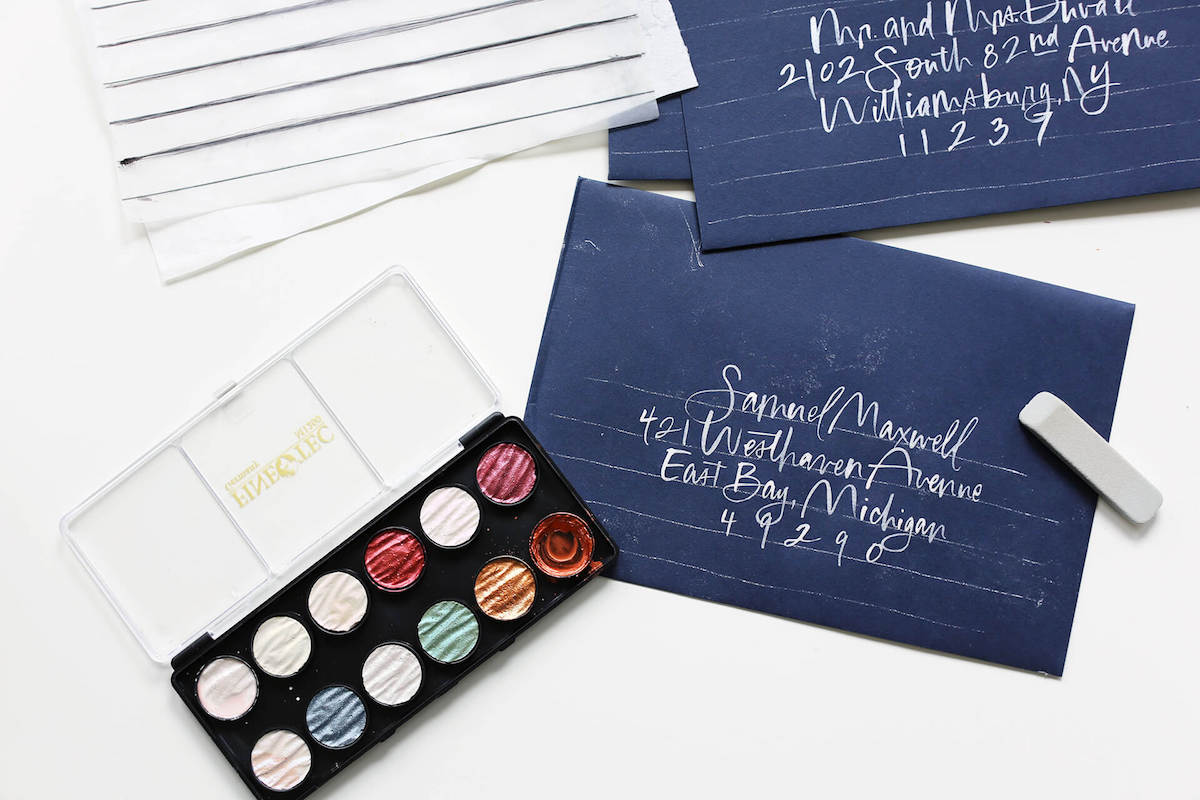 Mr. and Mrs. Duvall
2102 South 82nd Avenue
Williamsburg, NY
11237
Samuel Maxwell
421 Westhaven Avenue
East Bay, Michigan
49290
FINETEC